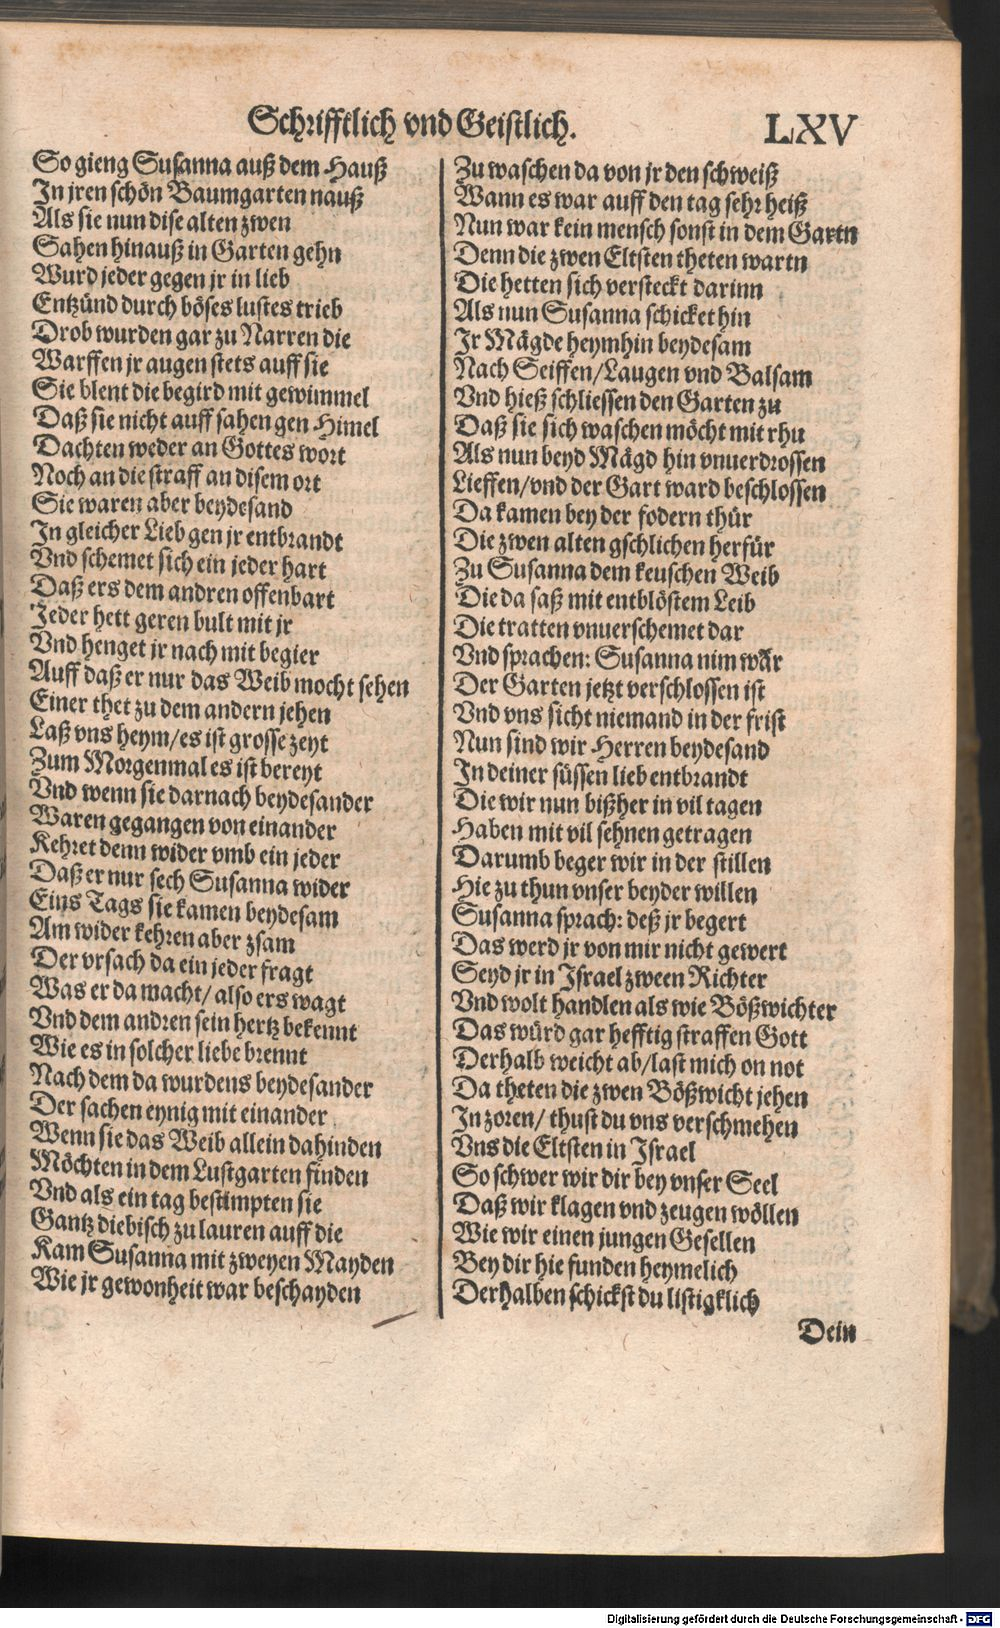 Schrifftlich vnd Geistlich.
LXV
So gieng Susanna auß dem Hauß
In jren schön Baumgarten nauß
Als sie nun dise alten zwen
Sahen hinauß in Garten gehn
Wurd jeder gegen jr in lieb
Entzünd durch böses lustes trieb
Drob wurden gar zu Narren die
Warffen jr augen stets auff sie
Sie blent die begird mit gewimmel
Daß sie nicht auff sahen gen Himel
Dachten weder an Gottes wort
Noch an die straff an disem ort
Sie waren aber beydesand
In gleicher Lieb gen jr entbrandt
Vnd schemet sich ein jeder hart
Daß ers dem andren offenbart
Jeder hett geren bult mit jr
Vnd henget jr nach mit begier
Auff daß er nur das Weib mocht sehen
Einer thet zu dem andern jehen
Laß vns heym/es ist grosse zeyt
Zum Morgenmal es ist bereyt
Vnd wenn sie darnach beydesander
Waren gegangen von einander
Kehret denn wider vmb ein jeder
Daß er nur sech Susanna wider
Eins Tags sie kamen beydesam
Am wider kehren aber zsam
Der vrsach da ein jeder fragt
Was er da macht/ also ers wagt
Vnd dem andren sein hertz bekennt
Wie es in solcher liebe brennt
Nach dem da wurdens beydesander
Der sachen eynig mit einander
Wenn sie das Weib allein dahinden
Möchten in dem Lustgarten finden
Vnd als ein tag bestimpten sie
Gantz diebisch zu lauren auff die
Kam Susanna mit zweyen Mayden
Wie jr gewonheit war beschayden
Zu waschen da von jr den schweiß
Wann es war auff den tag sehr heiß
Nun war kein mensch sonst in dem Gartn
Denn die zwen Eltsten theten wartn
Die hetten sich versteckt darinn
Als nun Susanna schicket hin
Ir Mägde heymhin beydesam
Nach Seiffen/Laugen vnd Balsam
Vnd hieß schliessen den Garten zu
Daß sie sich waschen möcht mit rhu
Als nun beyd Mägd hin vnuerdrossen
Lieffen/vnd der Gart ward beschlossen
Da kamen bey der fodern thür
Die zwen alten gschlichen herfür
Zu Susanna dem keuschen Weib
Die da saß mit entblöstem Leib
Die tratten vnuerschemet dar
Vnd sprachen: Susanna nim wär
Der Garten jetzt verschlossen ist
Vnd vns sicht niemand in der frist
Nun sind wir Herren beydesand
In deiner süssen lieb entbrandt
Die wir nun bißher in vil tagen
Haben mit vil sehnen getragen
Darumb beger wir in der stillen
Hie zu thun vnser beyder willen
Susanna sprach: deß jr begert
Das werd jr von mir nicht gewert
Seyd jr in Israel zween Richter
Vnd wolt handlen als wie Bößwichter
Das würd gar hefftig straffen Gott
Derhalb weicht ab/last mich on not
Da theten die zwen Bößwicht jehen
In zoren/ thust du vns verschmehen
Vns die Eltsten in Israel
So schwer wir dir bey vnser Seel
Daß wir klagen vnd zeugen wöllen
Wie wir einen jungen Gesellen
Bey dir hie funden heymelich
Derhalben schickst du listigklich
Dein
Digitalisierung gefördert durch die Deutsche Forschungsgemeinschaft - DFG